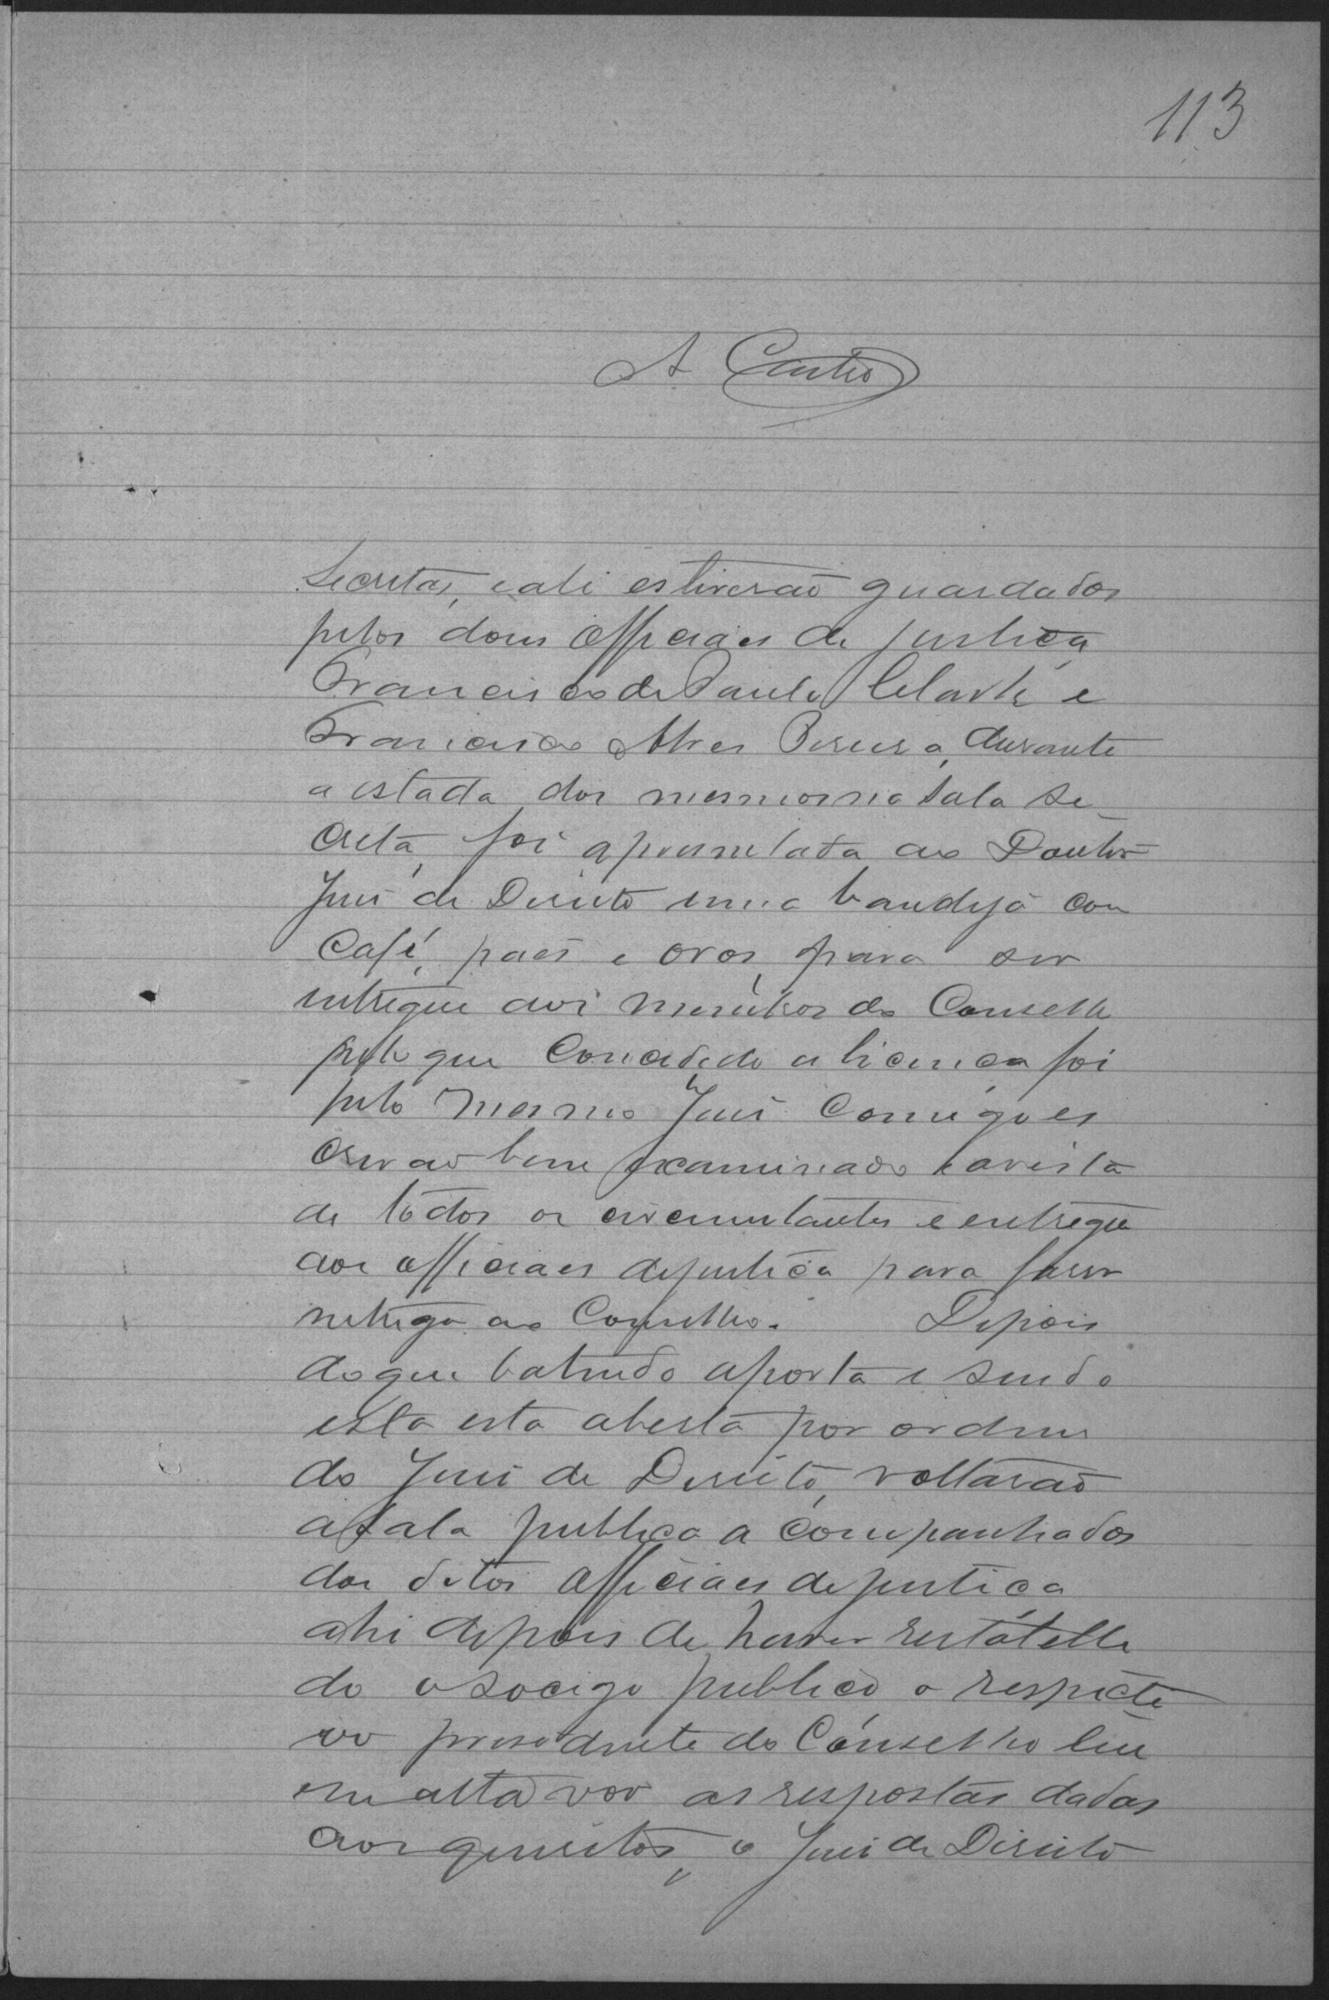 113
A. Castro
Secretas, e ali estiverão guardados
pelos dous officiaes de justiça
Francisco de Paula e
Francisco Alves Pereira, durante
a estada dos mesmos na sala se-
creta, foi apresentada ao Doutor
Juis de Direito uma bandeja com
Café, paes e ovos, para ser
entregue aos membros do Conselho
pelo que Concedido a licença foi
pelo mesmo Juis Comigo es
crivão bem examinado e a vista
de todos os circunstantes e entregue
aos officiaes de justiça para faser
netrega ao Conselho. Depois
do que batendo a porta e sendo
esta esta aberta por ordem
do Juis de Direito, voltarão
a sala publica a companhados
dos ditos officiaes de justica
ahi depois de haver restabelle
do o socego publico o respecti-
vo presidente do Conselho leu
em alta vos as respostas dadas
aos quesitos, o Juis de Direito